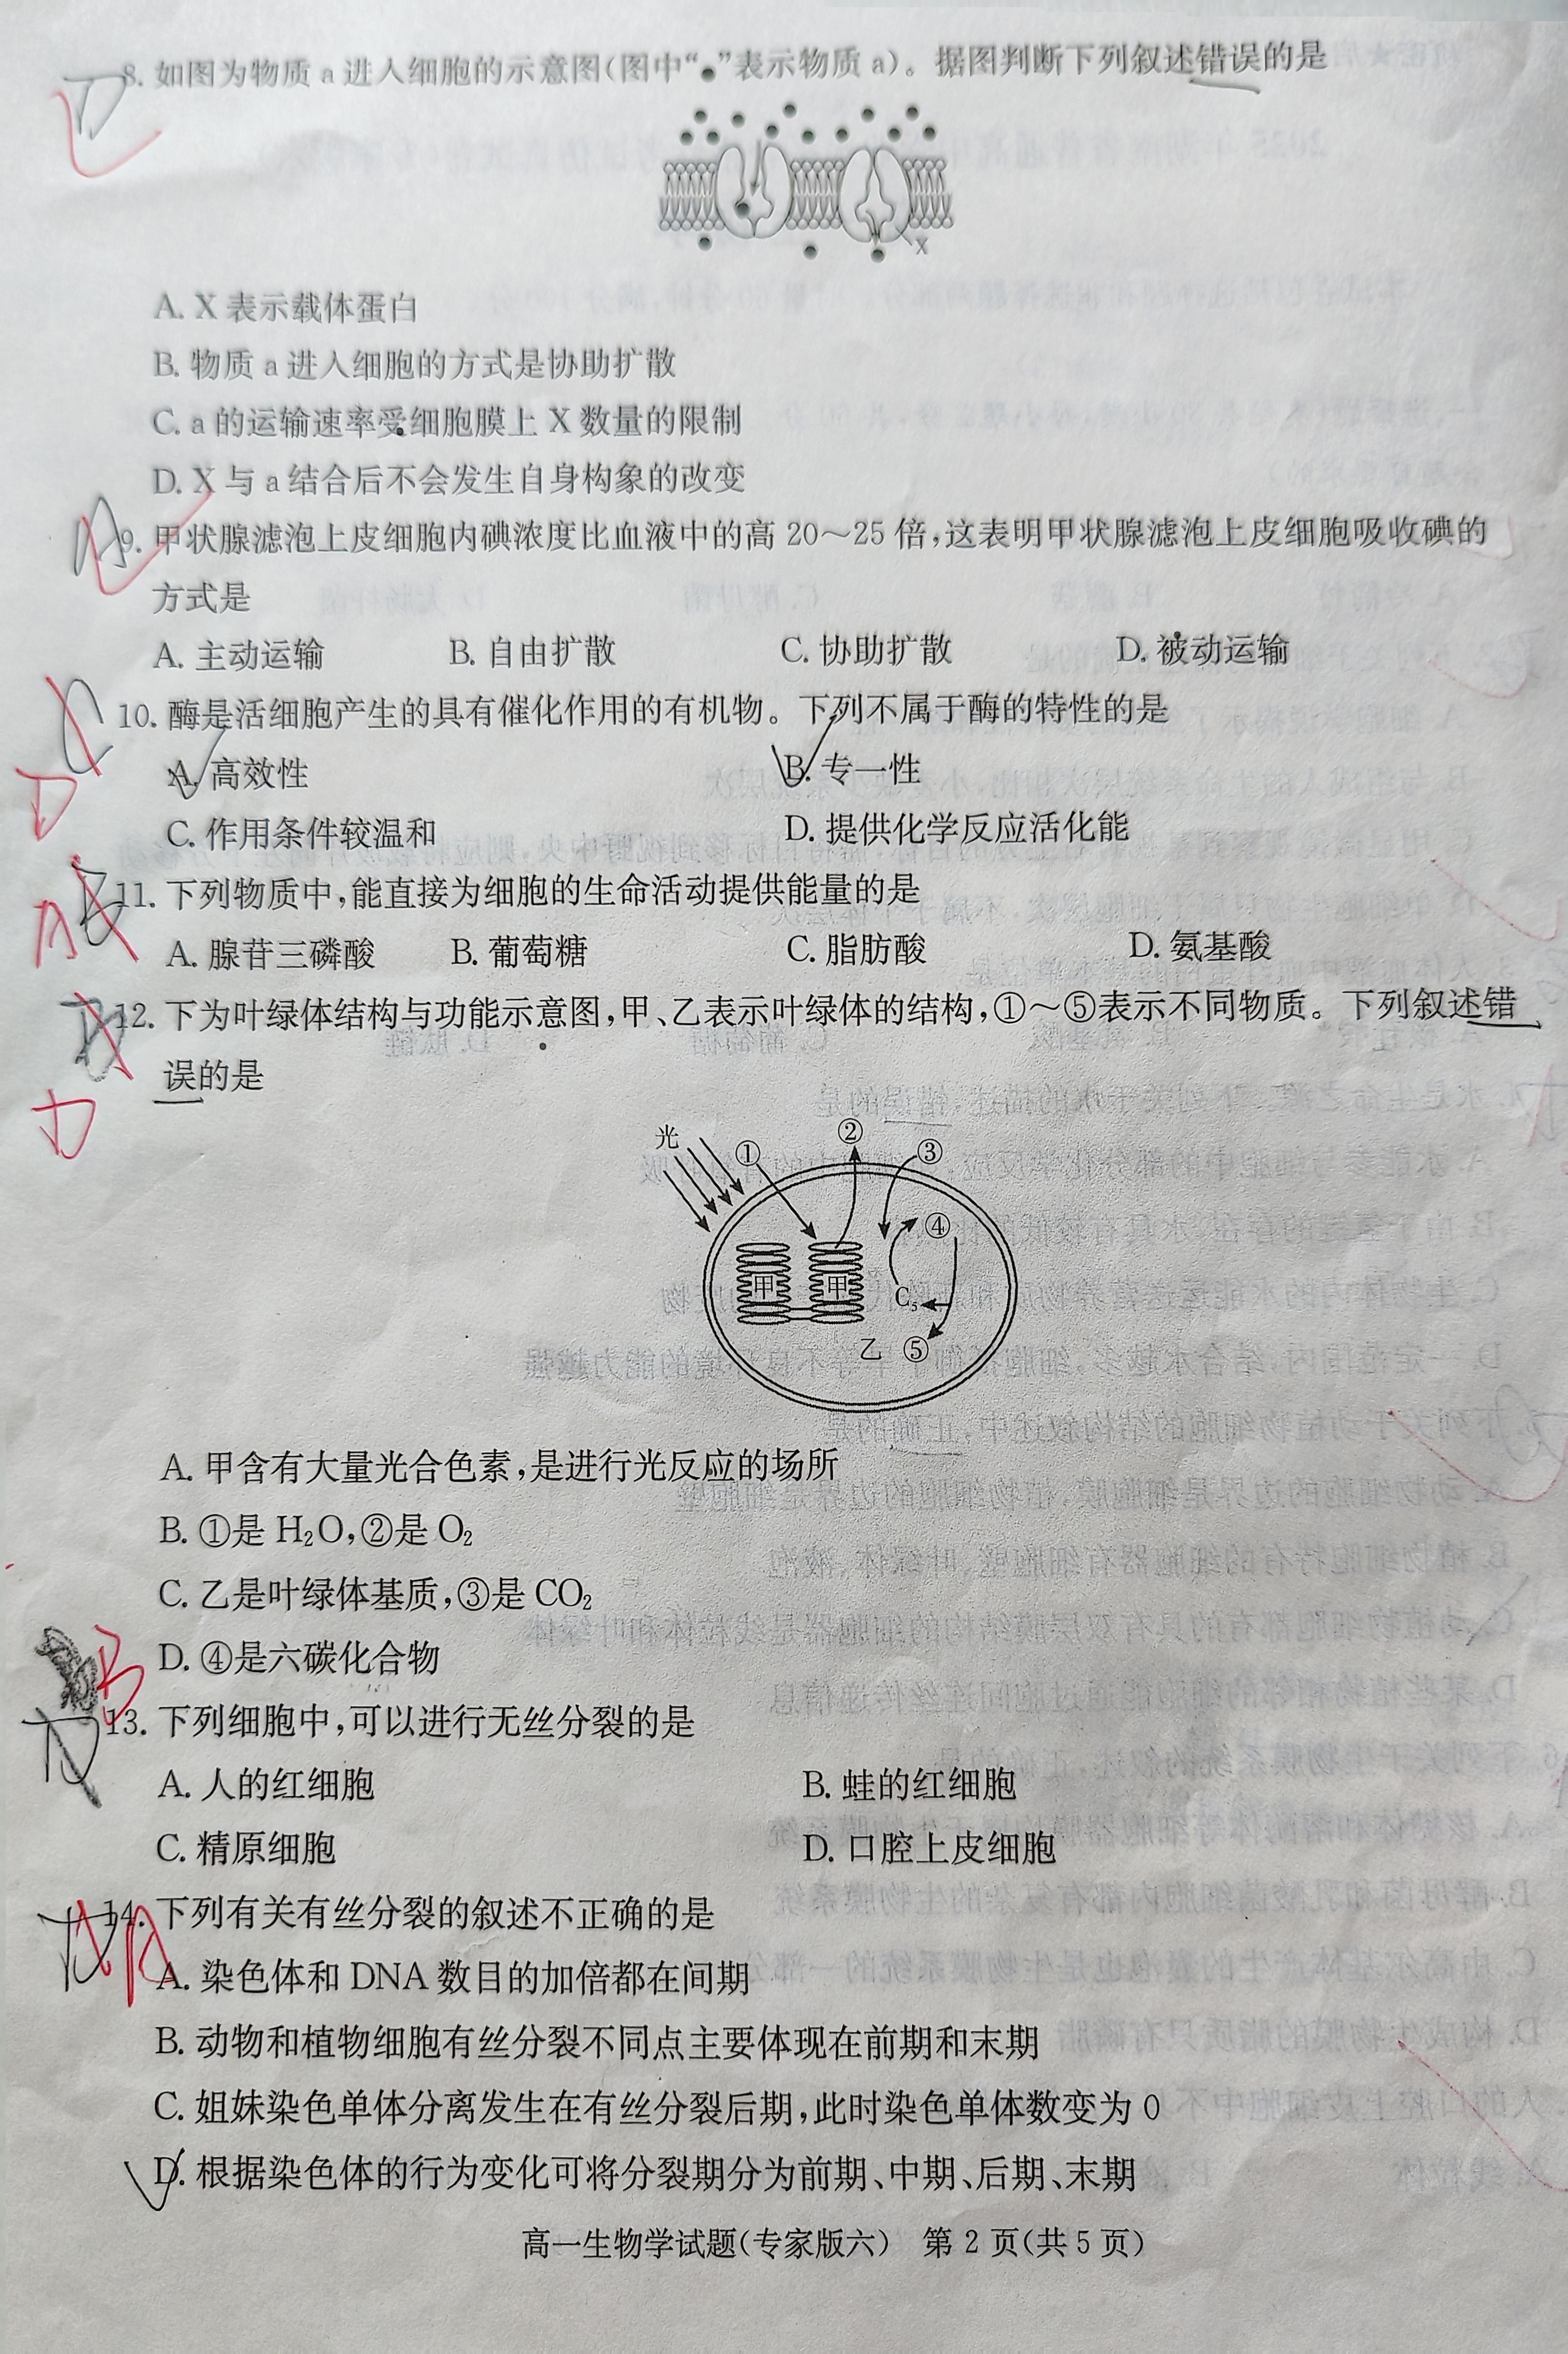 8. 如图为物质 a 进入细胞的示意图(图中“●”表示物质 a)。据图判断下列叙述错误的是
X
A. X 表示载体蛋白
B. 物质 a 进入细胞的方式是协助扩散
C. a 的运输速率受细胞膜上 X 数量的限制
D. X 与 a 结合后不会发生自身构象的改变
9. 甲状腺滤泡上皮细胞内碘浓度比血液中的高 20～25 倍,这表明甲状腺滤泡上皮细胞吸收碘的
方式是
A. 主动运输 B. 自由扩散 C. 协助扩散 D. 被动运输
10. 酶是活细胞产生的具有催化作用的有机物。下列不属于酶的特性的是
A. 高效性 B. 专一性
C. 作用条件较温和 D. 提供化学反应活化能
11. 下列物质中,能直接为细胞的生命活动提供能量的是
A. 腺苷三磷酸 B. 葡萄糖 C. 脂肪酸 D. 氨基酸
12. 下为叶绿体结构与功能示意图,甲、乙表示叶绿体的结构,①～⑤表示不同物质。下列叙述错
误的是
光 ① ② ③
④
甲 甲 C₅
乙 ⑤
A. 甲含有大量光合色素,是进行光反应的场所
B. ①是 H₂O,②是 O₂
C. 乙是叶绿体基质,③是 CO₂
D. ④是六碳化合物
B
13. 下列细胞中,可以进行无丝分裂的是
A. 人的红细胞 B. 蛙的红细胞
C. 精原细胞 D. 口腔上皮细胞
14. 下列有关有丝分裂的叙述不正确的是
A. 染色体和 DNA 数目的加倍都在间期
B. 动物和植物细胞有丝分裂不同点主要体现在前期和末期
C. 姐妹染色单体分离发生在有丝分裂后期,此时染色单体数变为 0
D. 根据染色体的行为变化可将分裂期分为前期、中期、后期、末期
高一生物学试题(专家版六) 第 2 页(共 5 页)